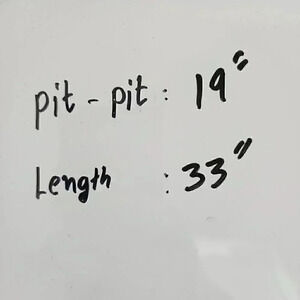 pit - pit : 19"
Length : 33"